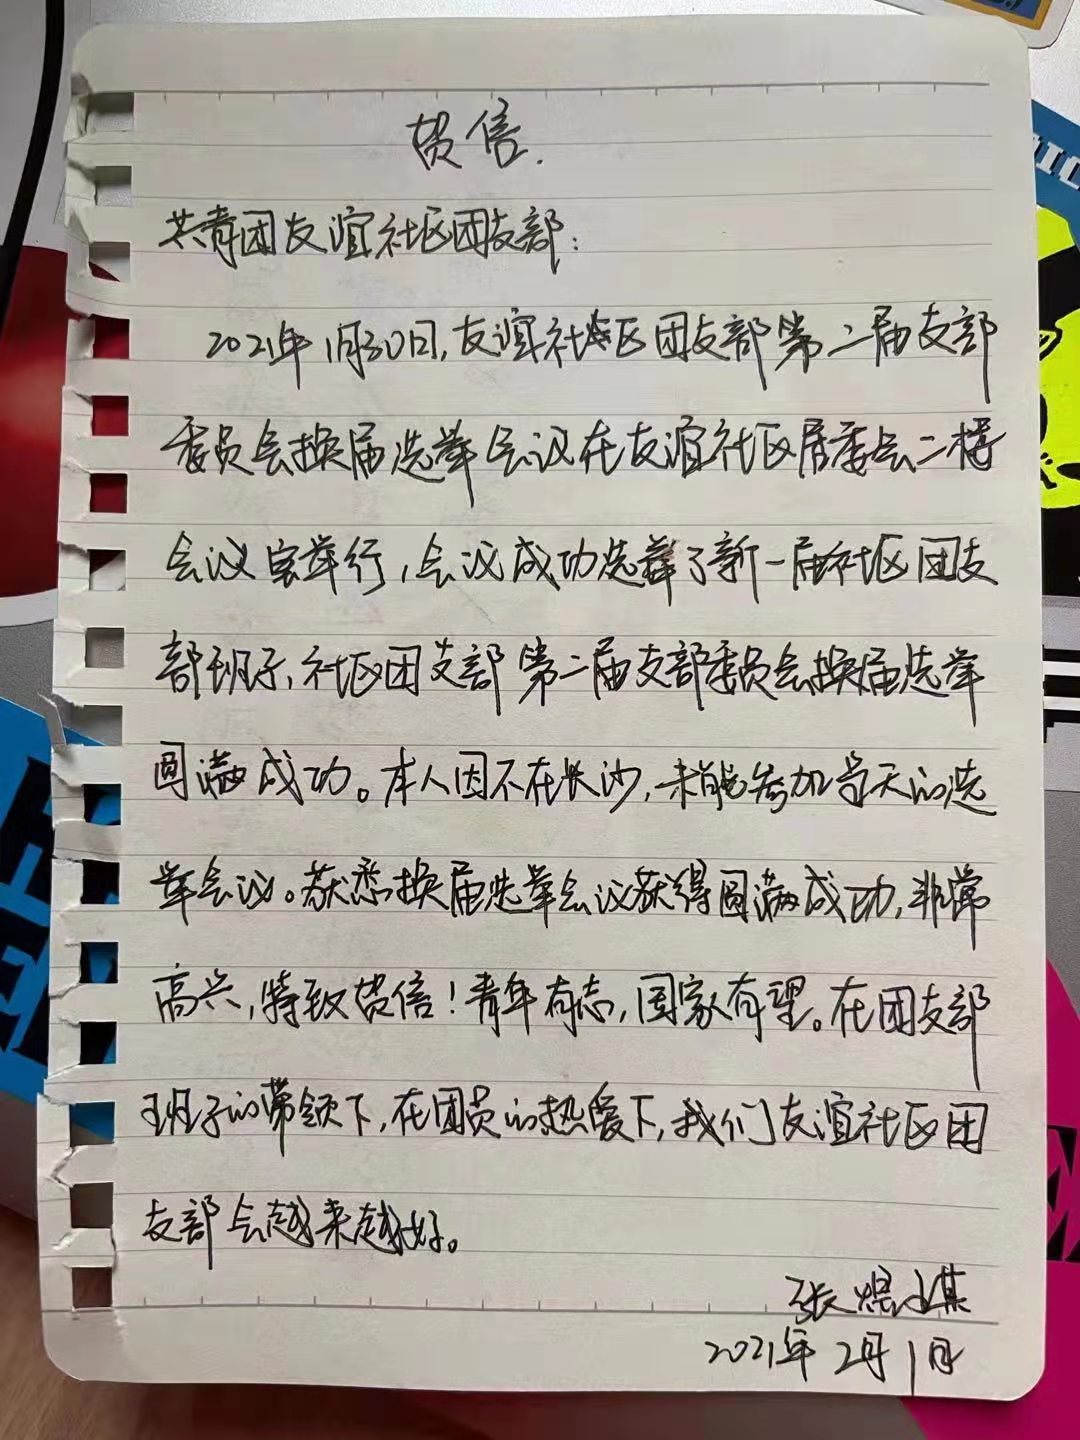 贺信.
共青团友谊社区团支部:
2021年1月30日,友谊社区团支部第二届支部
委员会换届选举会议在友谊社区居委会二楼
会议室举行,会议成功选举了新一届社区团支
部班子,社区团支部第二届支部委员会换届选举
圆满成功。本人因不在长沙,未能参加当天的选
举会议。获悉换届选举会议获得圆满成功,非常
高兴,特致贺信!青年有志,国家有望。在团支部
班子的带领下,在团员的热爱下,我们友谊社区团
支部会越来越好。
张煜
2021年2月1日